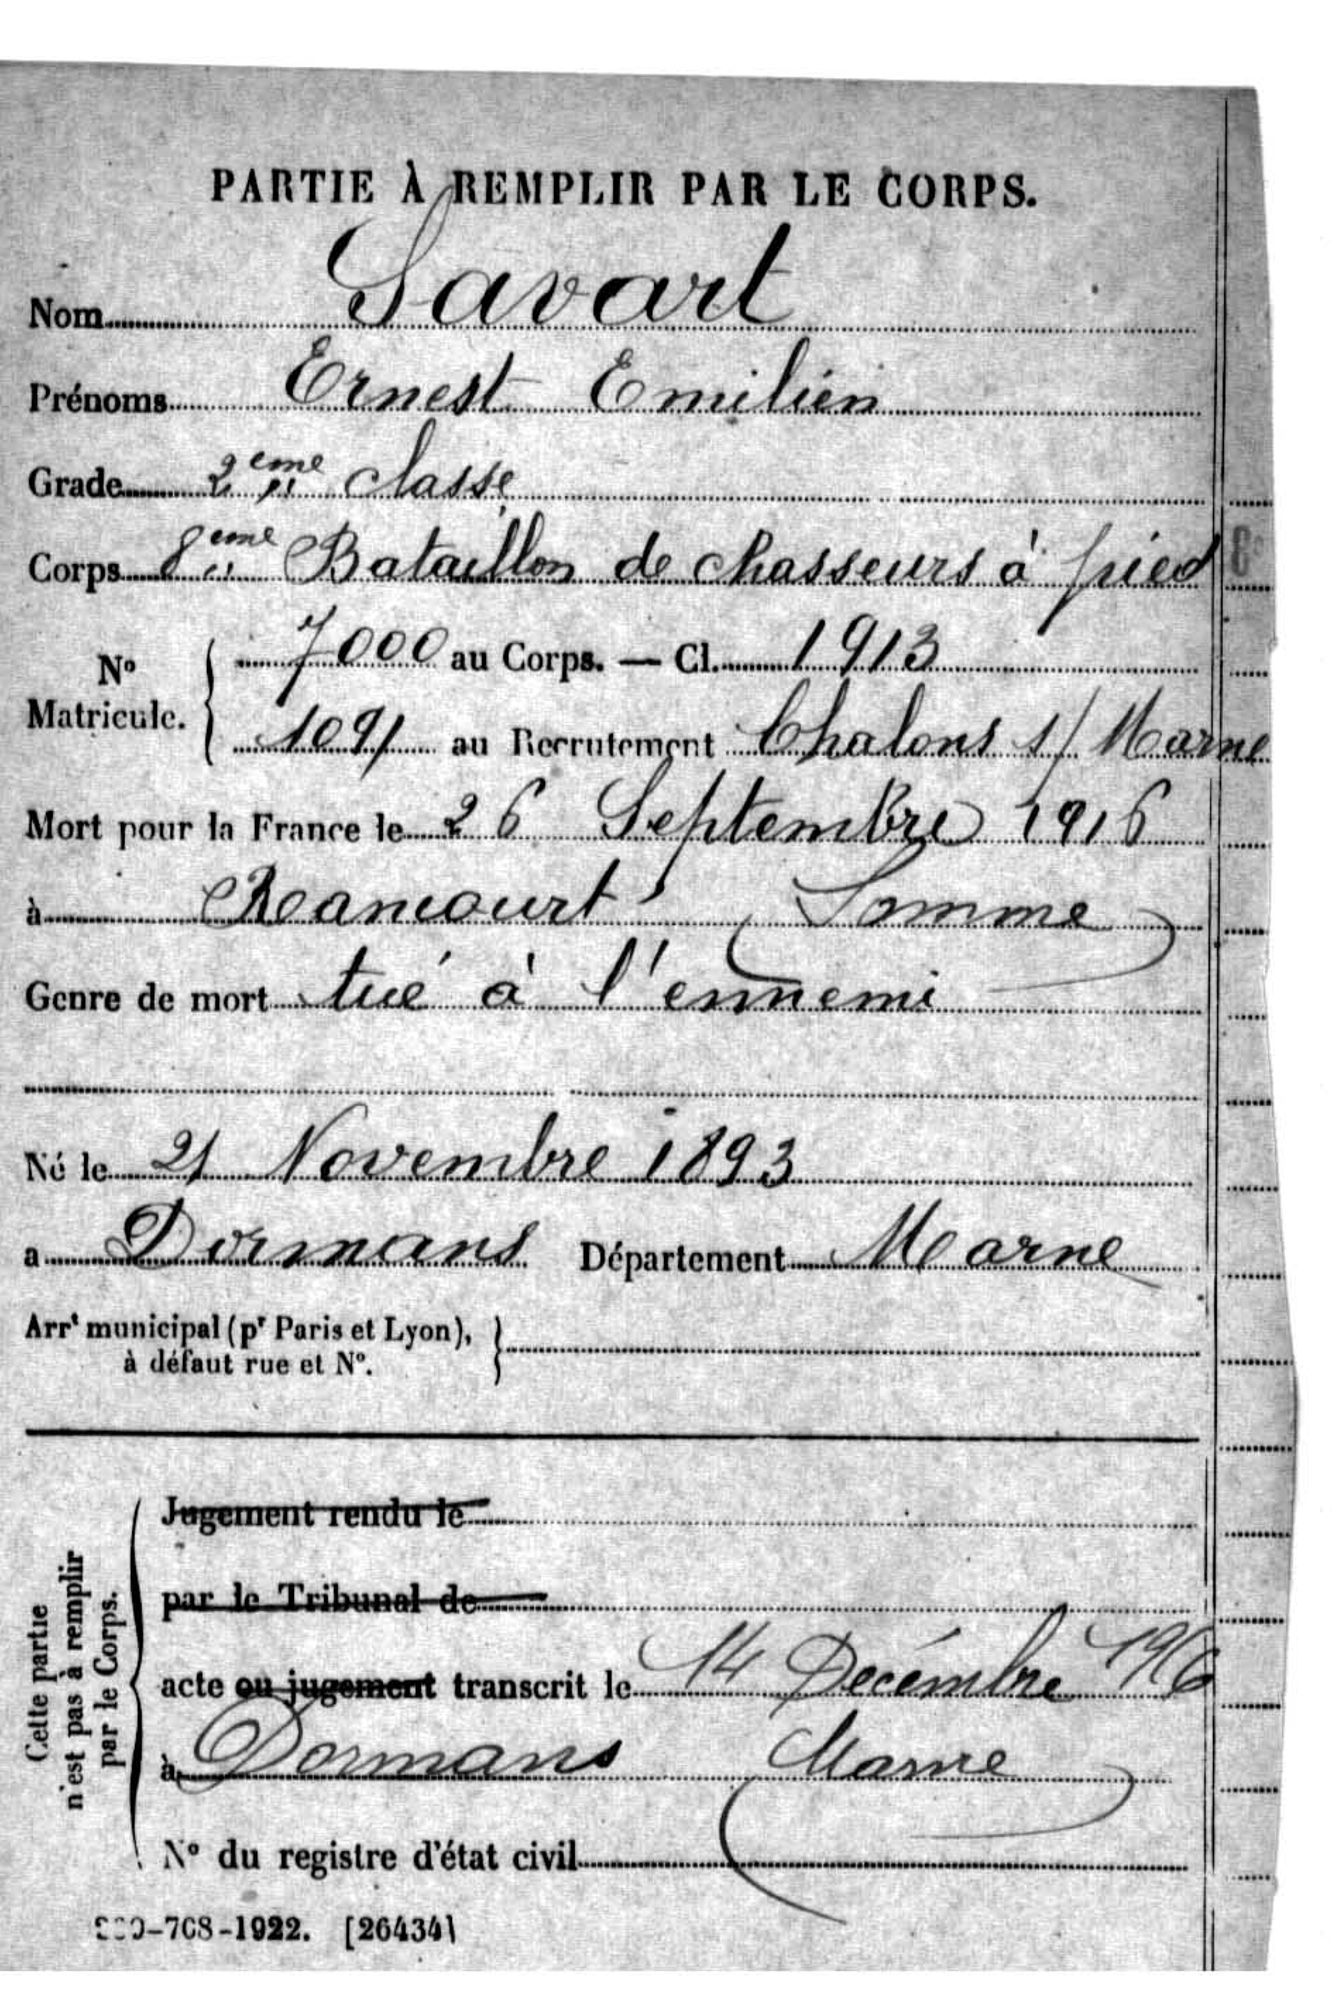 PARTIE À REMPLIR PAR LE CORPS.
Nom Savart
Prénoms Ernest Emilien
Grade 2eme classe
Corps 8eme Bataillon de chasseurs à pied
No Matricule. 7000 au Corps. — Cl. 1913
1091 au Recrutement Chalons s/ Marne
Mort pour la France le 26 Septembre 1916
à Rancourt (Somme)
Genre de mort tué à l'ennemi
Né le 21 Novembre 1893
a Dormans Département Marne
Arrt municipal (pr Paris et Lyon),
à défaut rue et No.
Cette partie
n'est pas à remplir
par le Corps.
Jugement rendu le
par le Tribunal de
acte ou jugement transcrit le 14 Décembre 1916
à Dormans (Marne)
No du registre d'état civil
-708-1922. [26434]